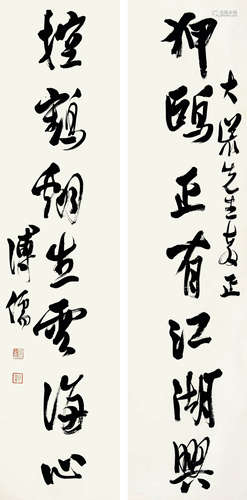 狎鷗正有江湖興
大溁先生芗正
控鶴翔生雲海心
溥儒